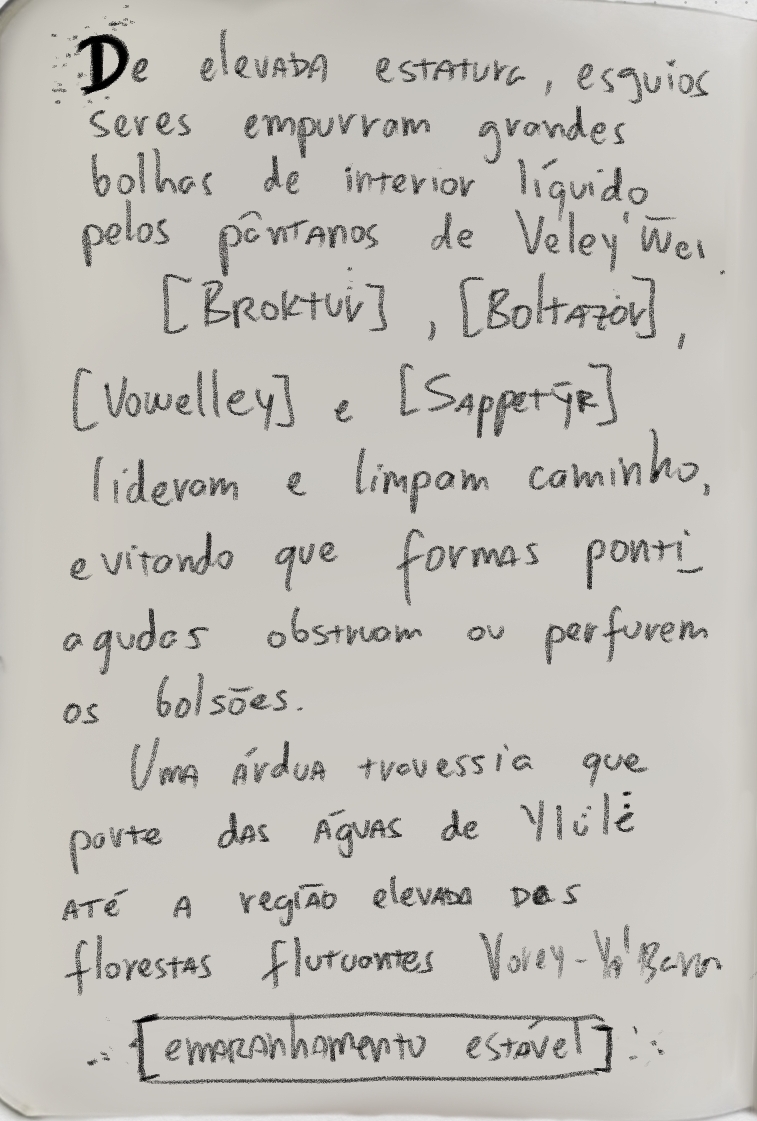 De elevada estatura, esguios
seres empurram grandes
bolhas de interior líquido
pelos pântanos de Veley'w̄ei.
[Broktui], [Boltazör],
[Vowelley] e [Sappetȳr]
lideram e limpam caminho,
evitando que formas ponti_
agudas obstruam ou perfurem
os bolsões.
Uma árdua travessia que
parte das águas de
até a região elevada das
florestas flutuantes
[emaranhamento estável]